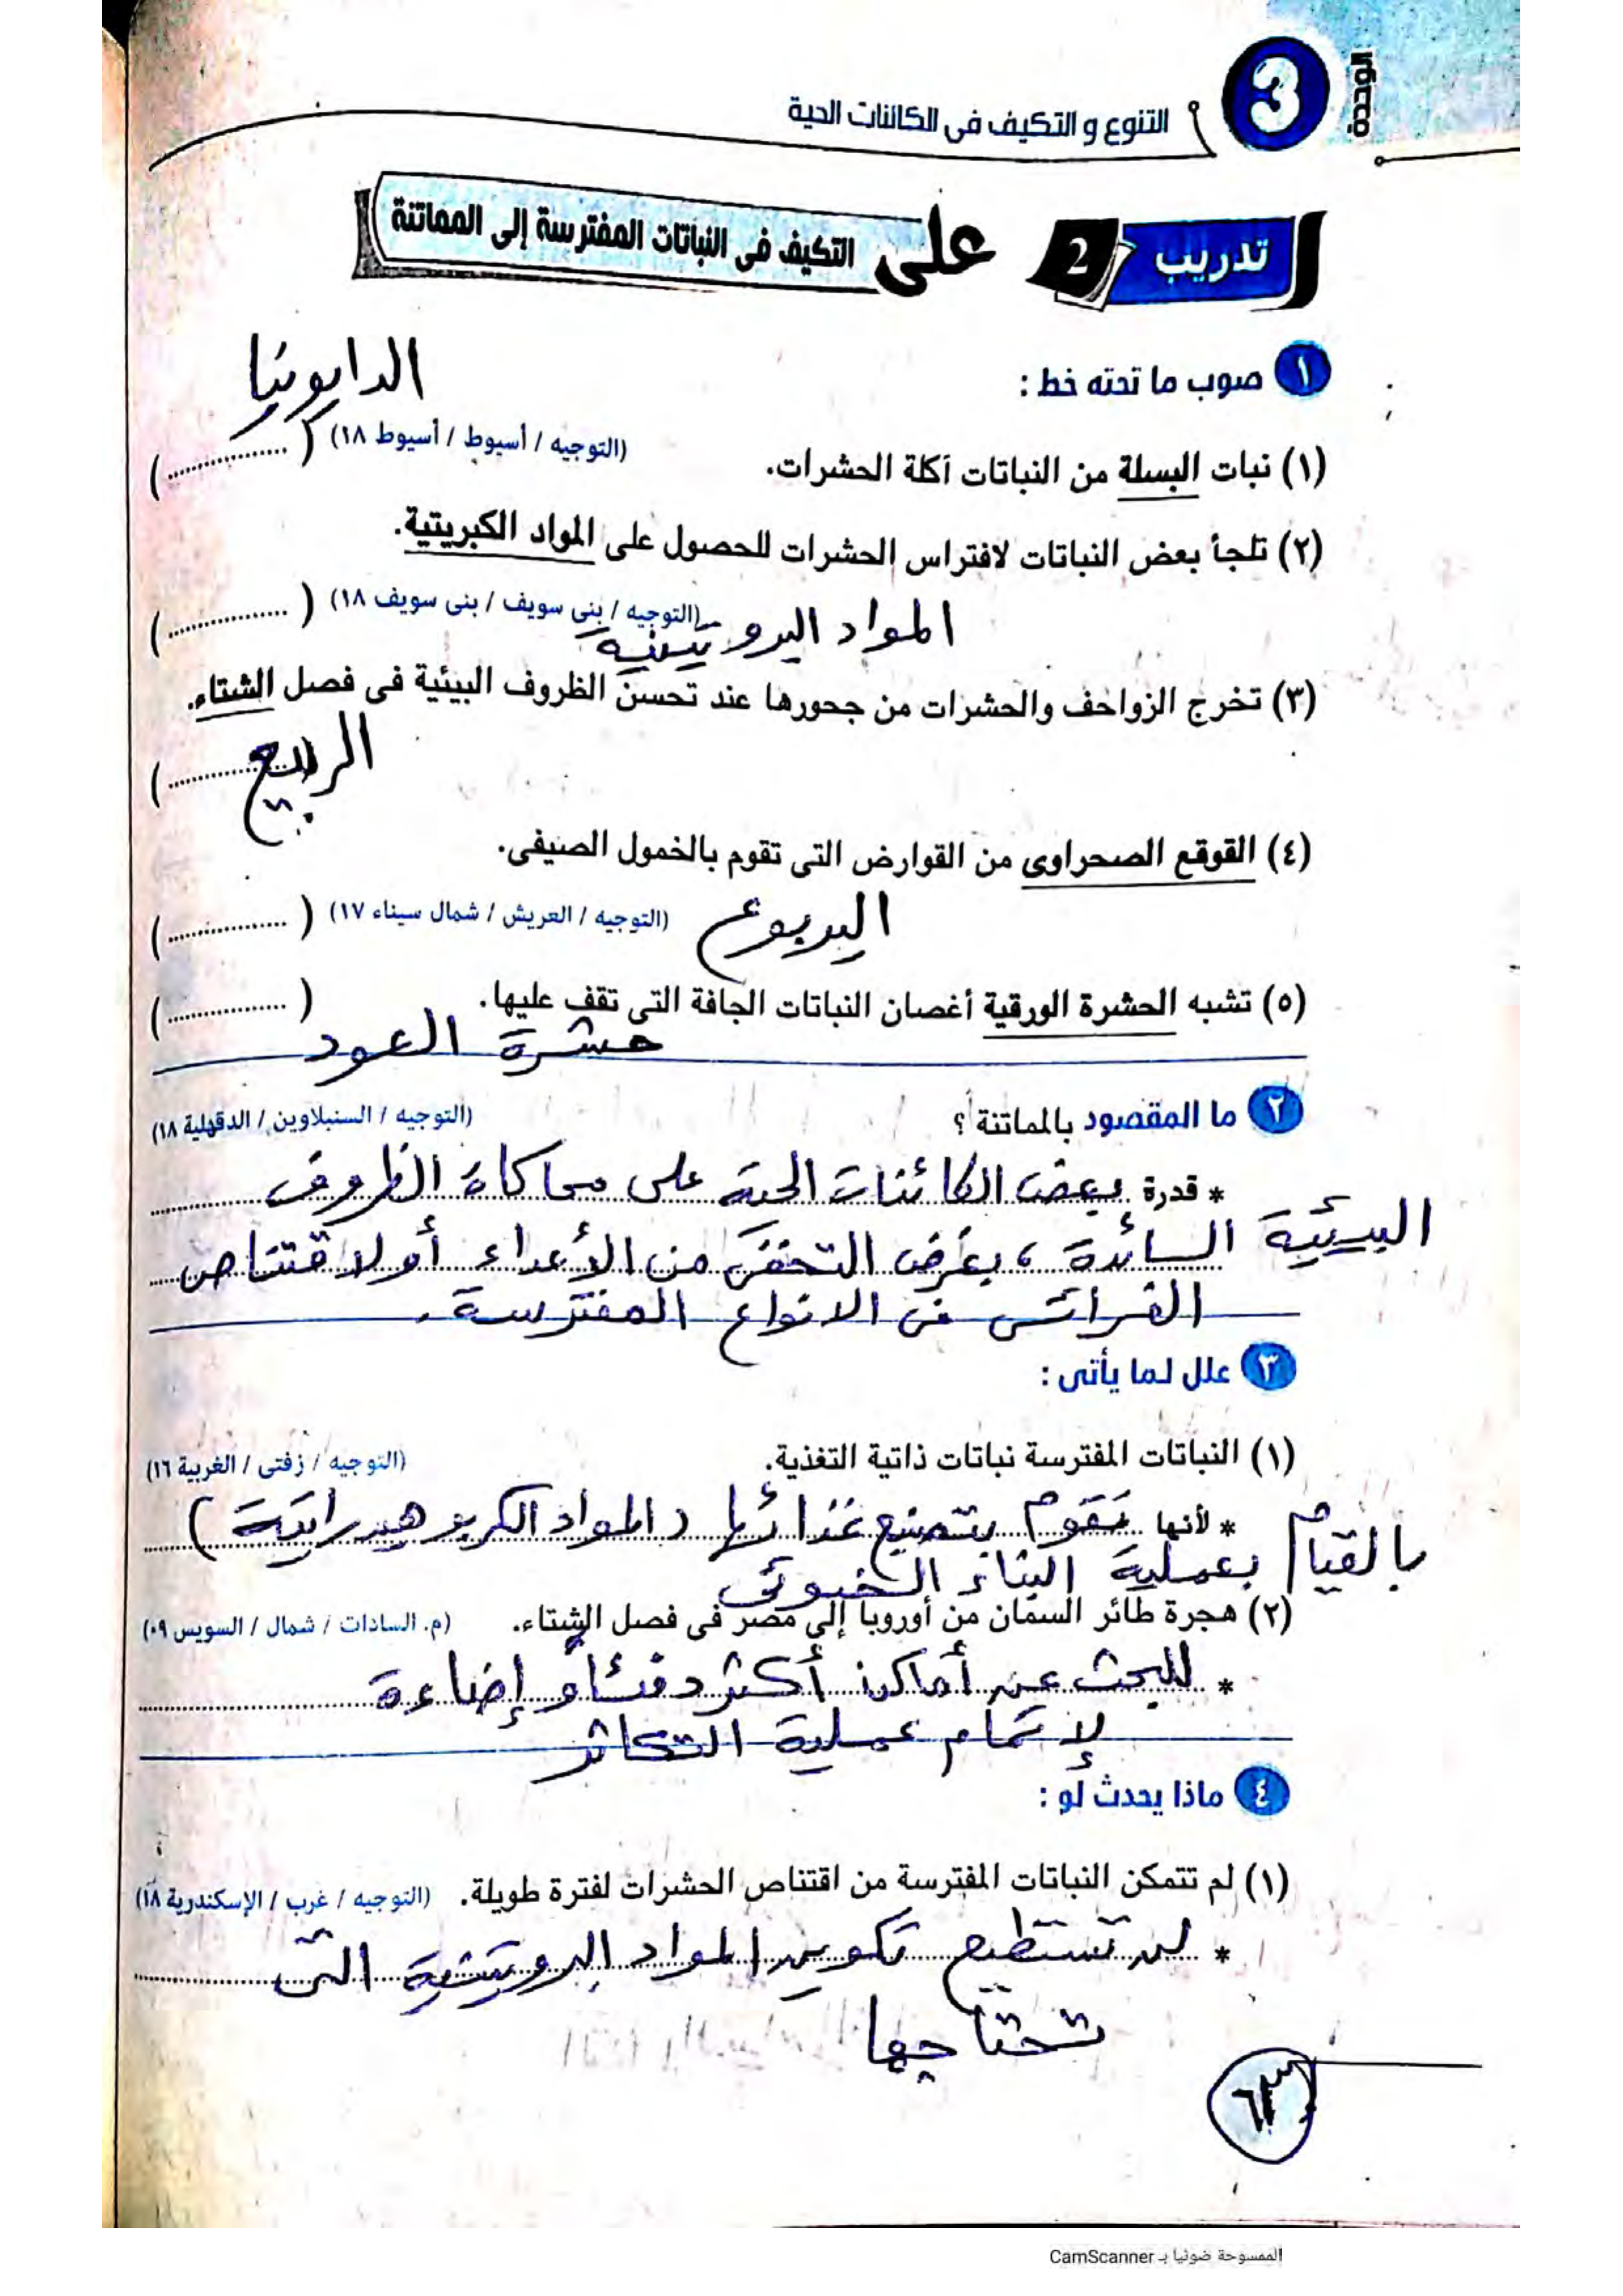 الوحدة 3
التنوع و التكيف فى الكائنات الحية
تدريب 2 على التكيف فى النباتات المفترسة إلى المماتنة
١ صوب ما تحته خط :
الدايونيا
(١) نبات البسلة من النباتات آكلة الحشرات. (التوجيه / أسيوط / أسيوط ١٨) ( ................ )
(٢) تلجأ بعض النباتات لافتراس الحشرات للحصول على المواد الكبريتية.
(التوجيه / بنى سويف / بنى سويف ١٨) ( ................ )
المواد البروتينية
(٣) تخرج الزواحف والحشرات من جحورها عند تحسن الظروف البيئية فى فصل الشتاء.
( الربيع )
(٤) القوقع الصحراوى من القوارض التى تقوم بالخمول الصيفى.
اليربوع (التوجيه / العريش / شمال سيناء ١٧) ( ................ )
(٥) تشبه الحشرة الورقية أغصان النباتات الجافة التى تقف عليها. ( ................ )
حشرة العود
٢ ما المقصود بالمماتنة ؟ (التوجيه / السنبلاوين / الدقهلية ١٨)
* قدرة بعض الكائنات الحية على محاكاة الظروف
البيئية السائدة ، بغرض التخفى من الأعداء أو لاقتناص
الفرائس فى الانواع المفترسة.
٣ علل لما يأتى :
(١) النباتات المفترسة نباتات ذاتية التغذية. (التوجيه / زفتى / الغربية ١٦)
* لأنها تقوم بتصنيع غذائها (المواد الكربوهيدراتية)
بالقيام بعملية البناء الضوئى
(٢) هجرة طائر السمان من أوروبا إلى مصر فى فصل الشتاء. (م. السادات / شمال / السويس ٠٩)
* للبحث عن أماكن أكثر دفئاً و إضاءة
لإتمام عملية التكاثر
٤ ماذا يحدث لو :
(١) لم تتمكن النباتات المفترسة من اقتناص الحشرات لفترة طويلة. (التوجيه / غرب / الإسكندرية ١٨)
* لن تستطيع تكوين المواد البروتينية التى
تحتاجها
٦٣
الممسوحة ضوئيا بـ CamScanner